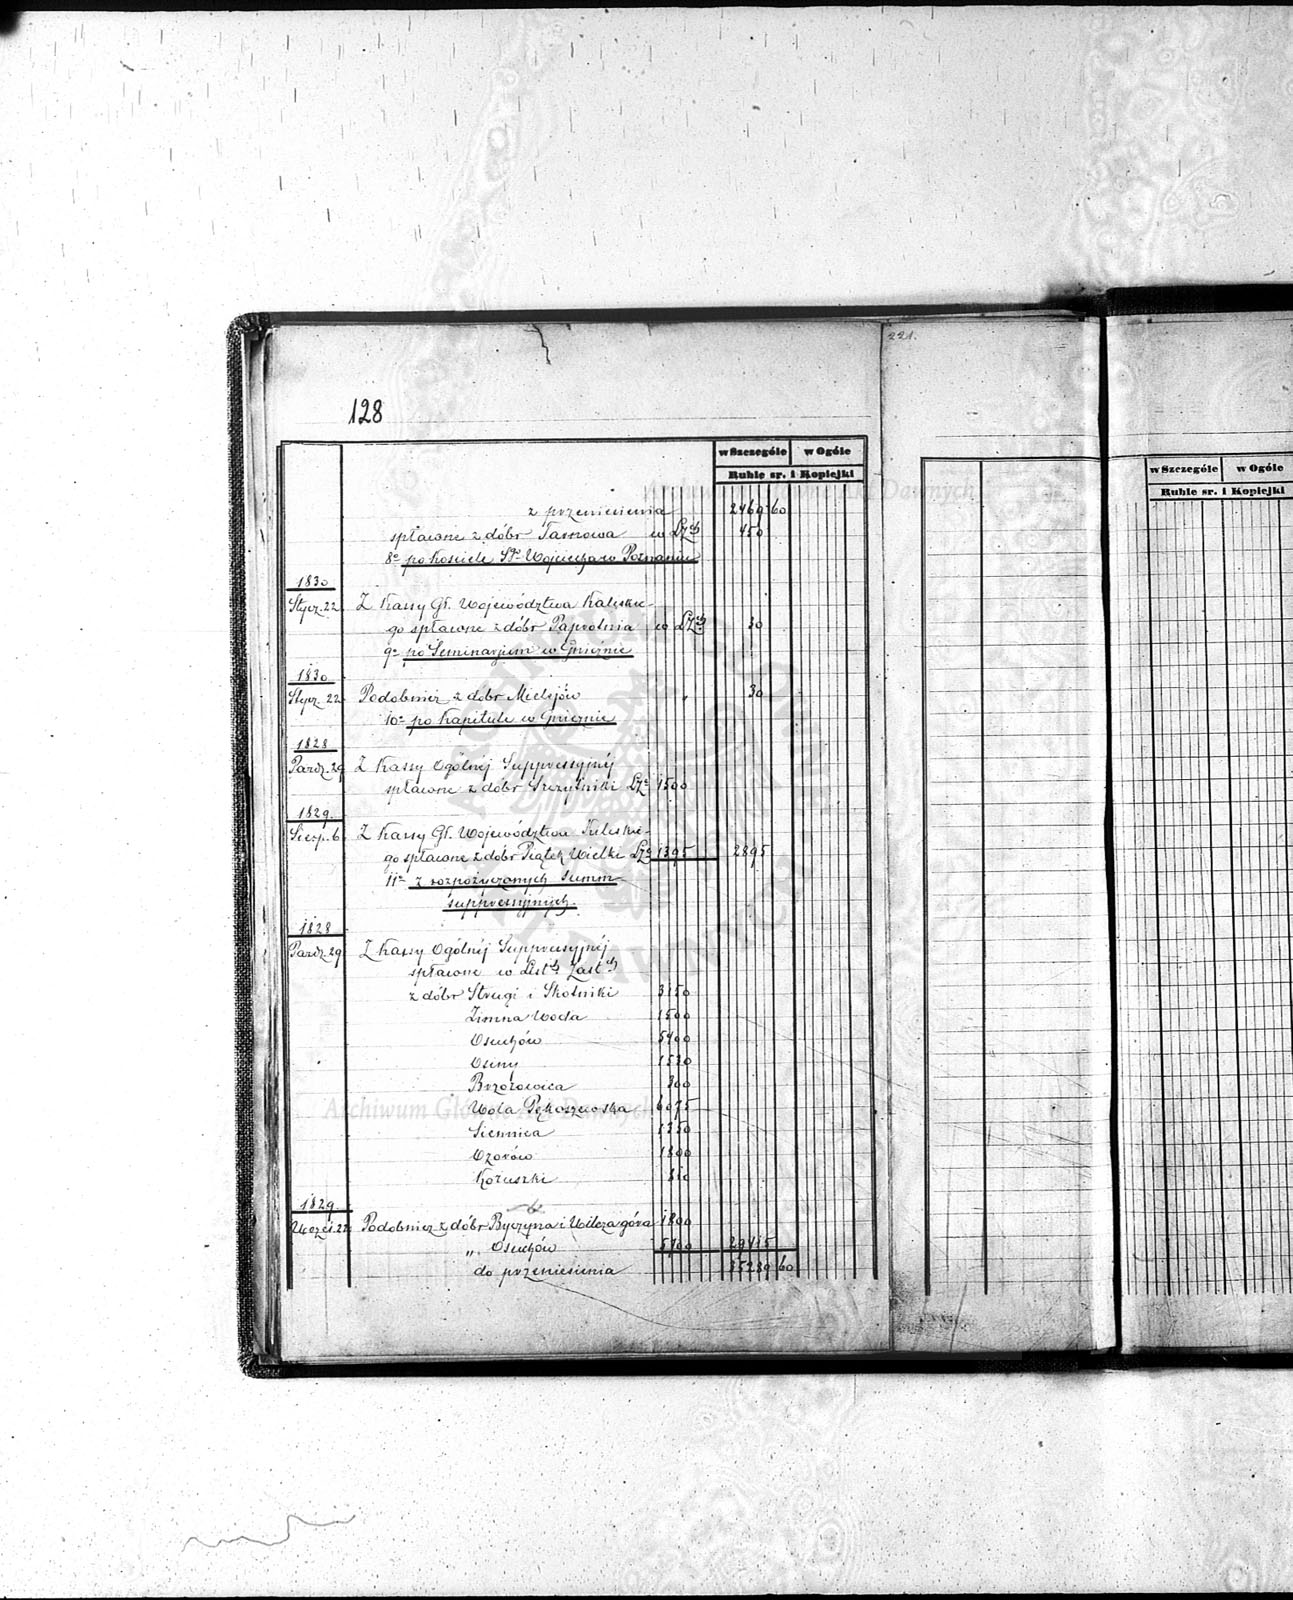 221.
128
w Szczególe w Ogóle
Ruble sr. i Kopiejki
w Szczególe w Ogóle
Ruble sr. i Kopiejki
z przeniesienia 2469 60
spłacone z dóbr Tarnowa w Lzch 450
8o po Kościele Sgo Wojciecha w Poznaniu
1830
Stycz. 22 Z Kassy Gł. Województwa Kaliskie-
go spłacone z dóbr Paprotnia w Lzch 30
9o po Seminarjum w Gnieźnie
1830
Stycz. 22 Podobnież z dóbr Mielejów " 30
10o po Kapitule w Gnieźnie
1828
Paźdz. 29 Z Kassy Ogólnéj Suppressyjnéj
spłacone z dóbr Szczytniki Lzc 1500
1829.
Sierp. 6 Z Kassy Gł. Województwa Kaliskie-
go spłacone z dóbr Piątek Wielki Lzc 1395 2895
11o z rozpożyczonych summ
suppressyjnych.
1828
Paźdz. 29 Z Kassy Ogólnéj Suppressyjnéj
spłacone w Listch Zastch
z dóbr Strugi i Skotniki 3150
Zimna Woda 1500
Osuchów 5400
Osiny 1530
Brzozowica 300
Wola Pękoszewska 6075
Siennica 1350
Ozorów 1800
Kożuszki 810
1829.
Wrześ. 22 Podobnież z dóbr Byczyna i Wilcza góra 1800
" Osuchów 5700 29415
do przeniesienia 35289 60
Archiwum Główne Akt Dawnych
Archiwum Główne Akt Dawnych
ARCHIWUM GŁÓWNE AKT DAWNYCH